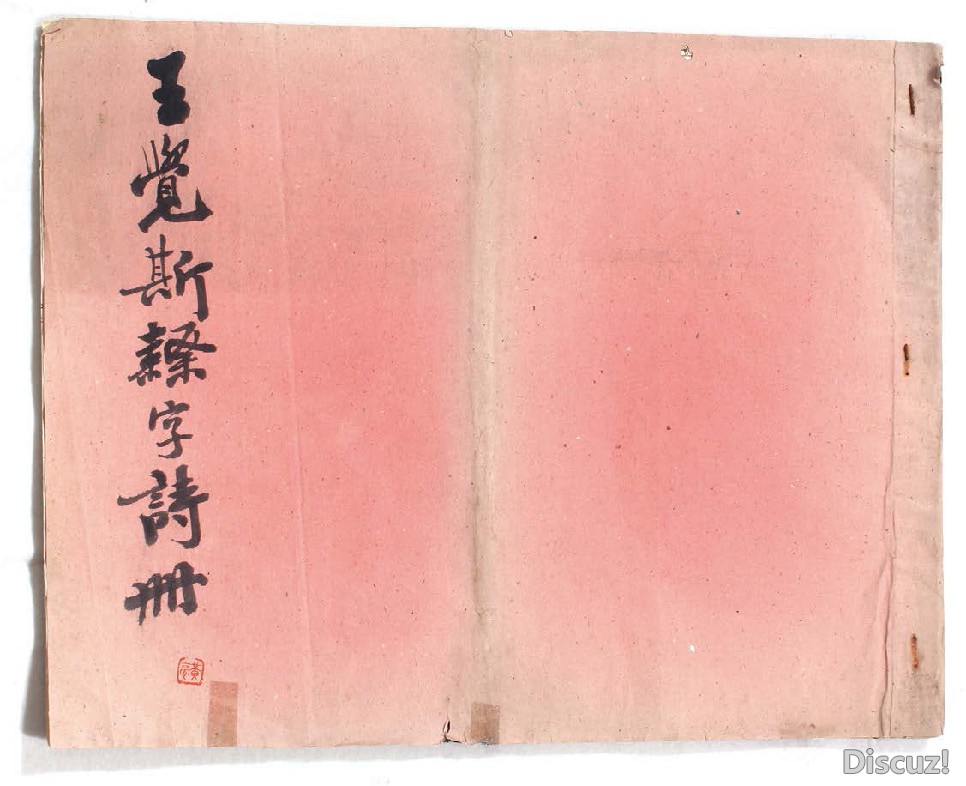 王覺斯隸字詩冊
Discuz!